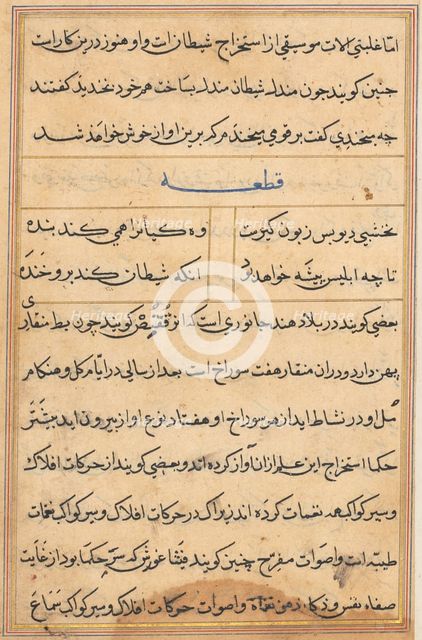 اما غلبتی الات موسیقی از استخراج شیطان است و او هنوز درین کار است
چنین کویند چون مندل شیطان مندل بساخت هر خود بخندید کفتند
چه میخندی کفت بر قومی میخندم که برین اواز خوش خواهند شد
قطعه
نخشبی دیو بس زبون کیرست
وه کیانرا همی کند بنده
تا چه ابلیس پیشه خواهد بود
انکه شیطان کند برو خنده
بعضی کویند در بلاد هند جانوری است که انرا ققنس کویند چون بط منقاری
پهن دارد و دران منقار هفت سوراخ است بعد از سالی در ایام کل و هنکام
مل او در نشاط اید از هر سوراخ او هفتاد نوع اواز بیرون اید بیشتر
حکما استخراج این علم از ان آواز کرده اند و بعضی کویند از حرکات افلاک
و سیر کواکب نغمات کرده اند زیراک در حرکات افلاک و سیر کواکب نغمات
طیبه است و اصوات مفرح چنین کویند فیثاغورش که سر حکما بود از غایت
صفاء نفس و ذکاء ذهن نغمات و اصوات حرکات افلاک و سیر کواکب سماع
Heritage
Heritage
Heritage